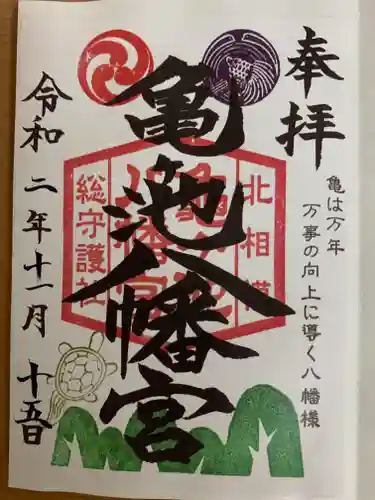 奉拝
亀は万年
万事の向上に導く八幡様
北相模
亀ヶ池
八幡宮
総守護社
亀池八幡宮
令和二年十一月十五日